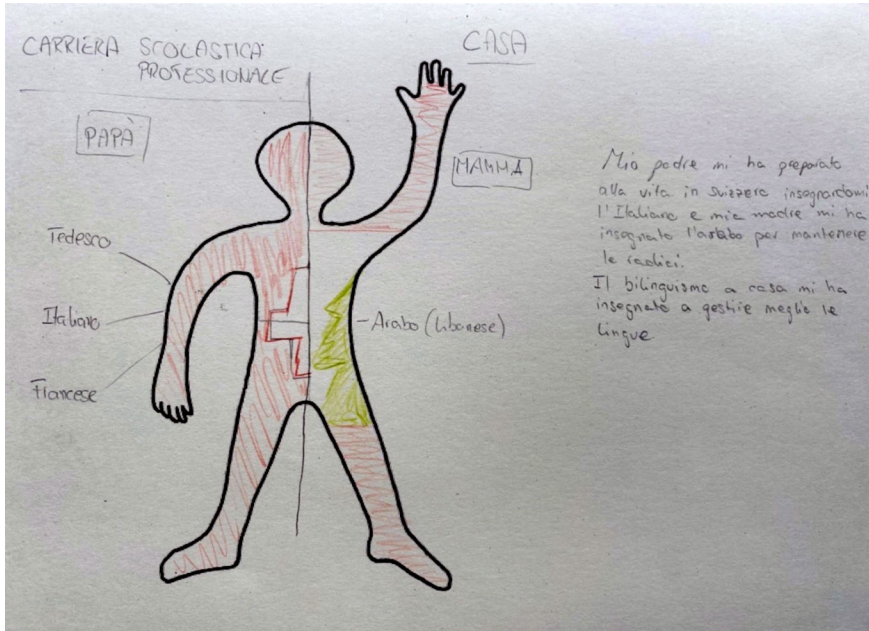 CARRIERA SCOLASTICA:
PROFESSIONALE
CASA
PAPÀ
MAMMA
Tedesco
Italiano
Francese
Arabo (libanese)
Mio padre mi ha preparato
alla vita in svizzera insegnandomi
l'Italiano e mia madre mi ha
insegnato l'arabo per mantenere
le radici.
Il bilinguismo a casa mi ha
insegnato a gestire meglio le
lingue